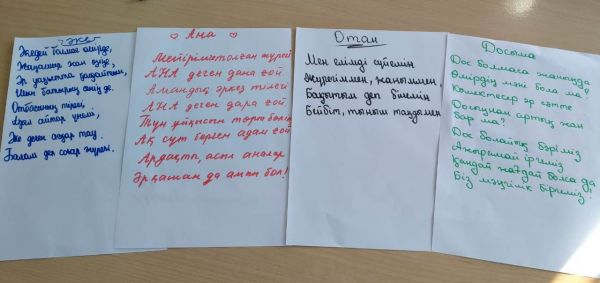 Әке
Жедел болмас өмірде,
Жақсылар жан өзіңе,
Әр уақытта
Отбасының тірегі,
Әділ айтар үнемі,
Әке деген асқар тау
Балам деп соғар жүрегі.
Ана
Мейірімге толған жүрегі
АНА деген дана ғой
Амандық әркез тілегі
АНА деген дара ғой.
Түн ұйқысын төрт бөліп
Ақ сүт берген адам ғой
Ардақты, асыл аналар
Әрқашан да аман бол!
Отан
Мен елімді сүйемін
Жүрегіммен, жаныммен,
Бақытым деп білемін
Бейбіт, тыныш таңдармен
Досыма
Дос болмаса жаныңда
Өмірдің мәні бола ма?
Көмектесер әр сәтте
Досыңнан артық жан
бар ма?
Дос болайық бәріміз
Ажырамай ірілі
Қандай жағдай болса да
Біз мәңгілік біргеміз!